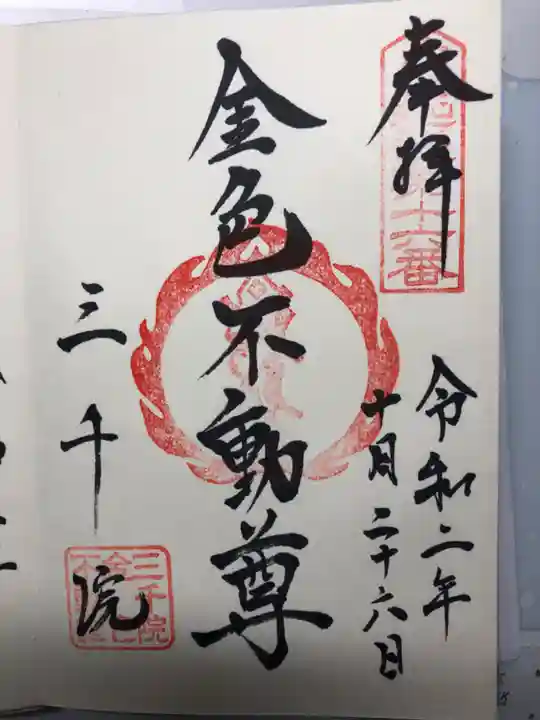 奉拝
十六番
令和二年
十月二十六日
金色不動尊
三千院
三千院